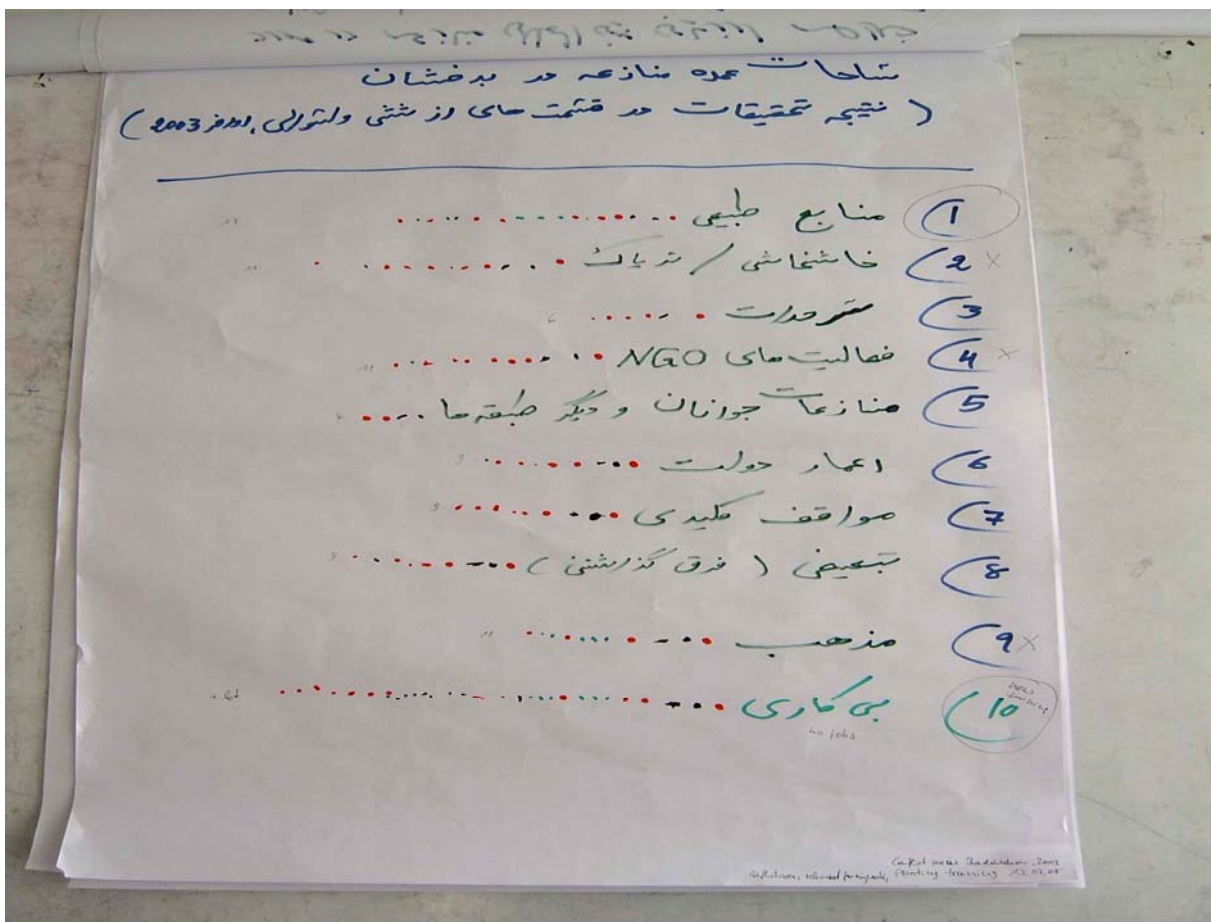 ساحات عمده منازعه در بدخشان
( نتیجه تحقیقات در قسمت های از شش ولسوالی، اواخر 2003 )
1) منابع طبیعی
2) خاشخاش / تریاک ×
3) مقررات
4) فعالیت های NGO ×
5) منازعات جوانان و دیگر طبقه ها
6) اعمار دولت
7) مواقف کلیدی
8) تبعیض ( فرق گذاشتن )
9) مذهب ×
10) بی کاری
no jobs
Conflict areas Badakhshan, 2003
training